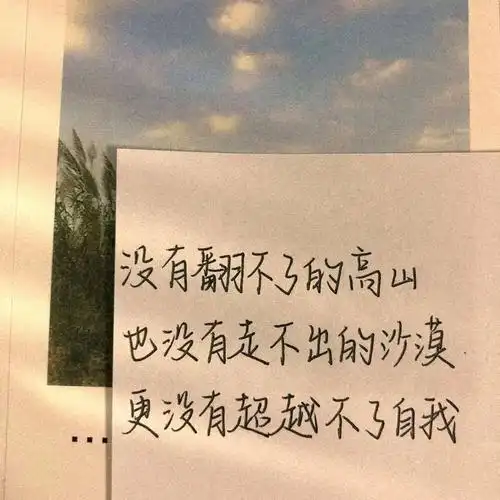 没有翻不了的高山
也没有走不出的沙漠
更没有超越不了自我